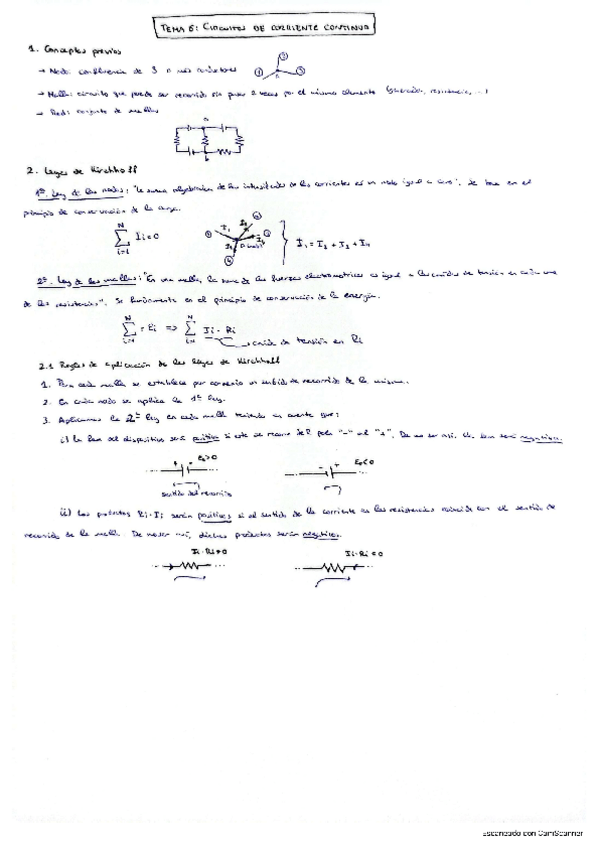 TEMA 6: CIRCUITOS DE CORRIENTE CONTINUA
1. Conceptos previos
→ Nodo: confluencia de 3 o más conductores
→ Malla: circuito que puede ser recorrido sin pasar 2 veces por el mismo elemento (generador, resistencia, ...)
→ Red: conjunto de mallas
2. Leyes de Kirchhoff
1ª Ley de los nudos: "La suma algebraica de las intensidades de las corrientes es un nodo igual a cero", se basa en el
principio de conservación de la carga.
∑ Ii = 0
I1 = I2 + I3 + I4
2ª Ley de las mallas: "En una malla, la suma de las fuerzas electromotrices es igual a las caídas de tensión en cada una
de las resistencias". Se fundamenta en el principio de conservación de la energía.
⇒ ∑ Ii · Ri
caída de tensión en Ri
2.1 Reglas de aplicación de las leyes de Kirchhoff
1. Para cada malla se establece por convenio un sentido de recorrido de la misma.
2. En cada nodo se aplica la 1ª ley.
3. Aplicamos la 2ª ley en cada malla teniendo en cuenta que:
i) La fem del dispositivo será positiva si este se recorre del polo "-" al "+". De no ser así, la fem será negativa.
E>0
E<0
sentido del recorrido
ii) Los productos Ri·Ii serán positivos si el sentido de la corriente en las resistencias coincide con el sentido de
recorrido de la malla. De no ser así, dichos productos serán negativos.
Ii·Ri>0
Ii·Ri<0
Escaneado con CamScanner